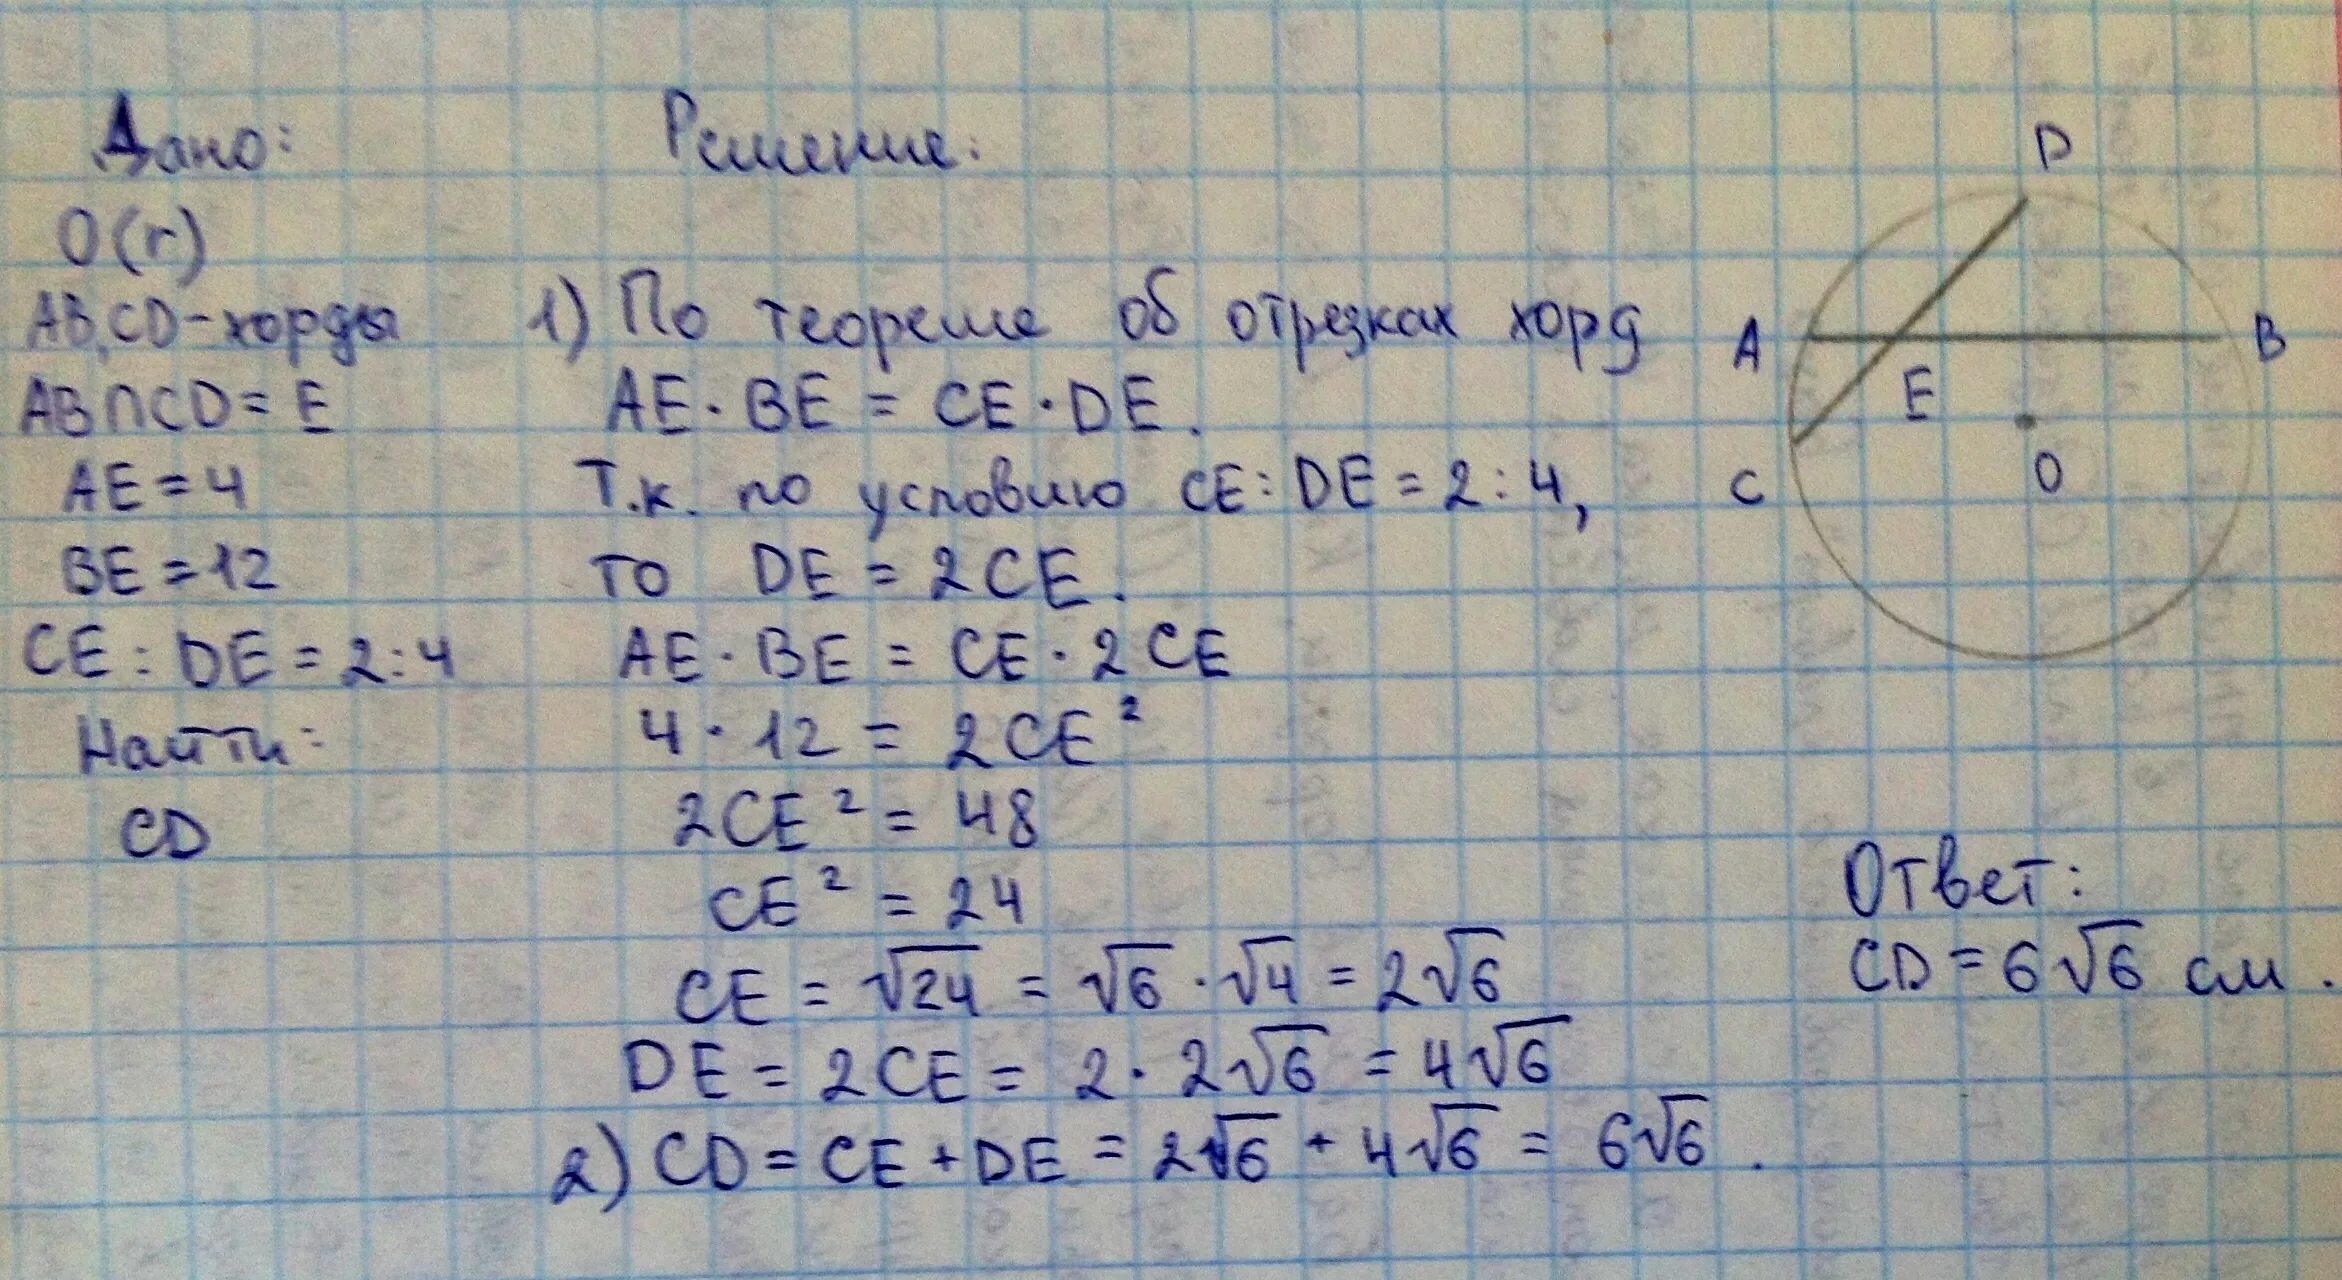 Дано:
О(r)
AB,CD-хорды
AB∩CD= E
AE=4
BE=12
CE:DE=2:4
Найти:
CD
Решение:
1) По теореме об отрезках хорд
AE·BE = CE·DE.
Т.к. по условию CE:DE=2:4,
то DE = 2CE.
AE·BE = CE·2CE
4·12 = 2CE²
2CE² = 48
CE² = 24
CE = √24 = √6·√4 = 2√6
DE = 2CE = 2·2√6 = 4√6
2) CD = CE+DE = 2√6 + 4√6 = 6√6.
D
A
B
E
C
O
Ответ:
CD = 6√6 см.